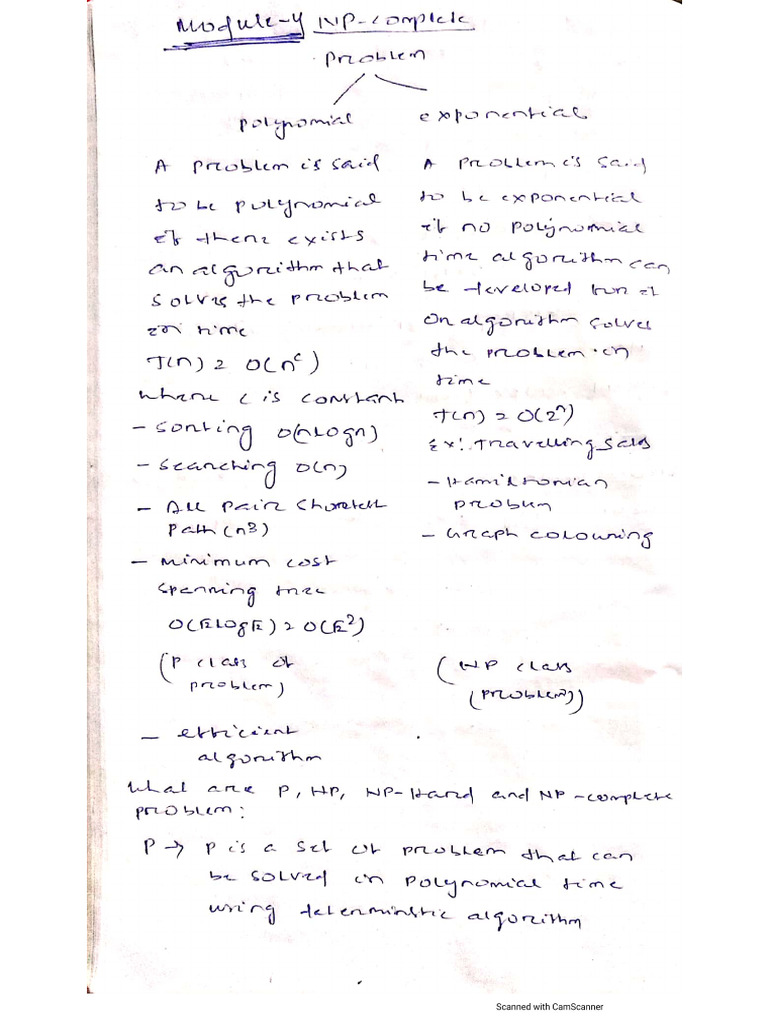 Module-4 NP-complete
Problem
polynomial
A problem is said
to be polynomial
if there exists
an algorithm that
solves the problem
in time
T(n) = O(n^c)
where c is constant
- Sorting O(nlogn)
- Searching O(n)
- All pair shortest
path (n3)
- Minimum cost
spanning tree
O(ElogE) = O(E^2)
(P class of
problem)
- efficient
algorithm
exponential
A problem is said
to be exponential
if no polynomial
time algorithm can
be developed
On algorithm solves
the problem in
time
T(n) = O(2^n)
Ex: Travelling Sales
- Hamiltonian
problem
- Graph colouring
(NP class
(problem))
What are P, NP, NP-Hard and NP-complete
problem:
P → P is a set of problem that can
be solved in polynomial time
using deterministic algorithm
Scanned with CamScanner